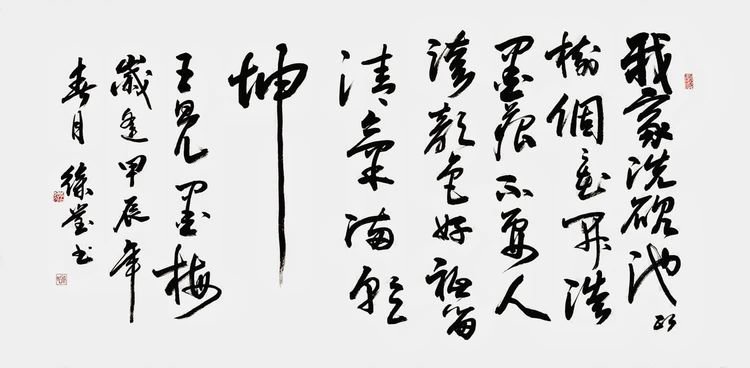 我家洗硯池頭
樹個個花開淡
墨痕不要人
誇顏色好祇留
清氣滿乾
坤
王冕墨梅
歲逢甲辰年
春月徐书